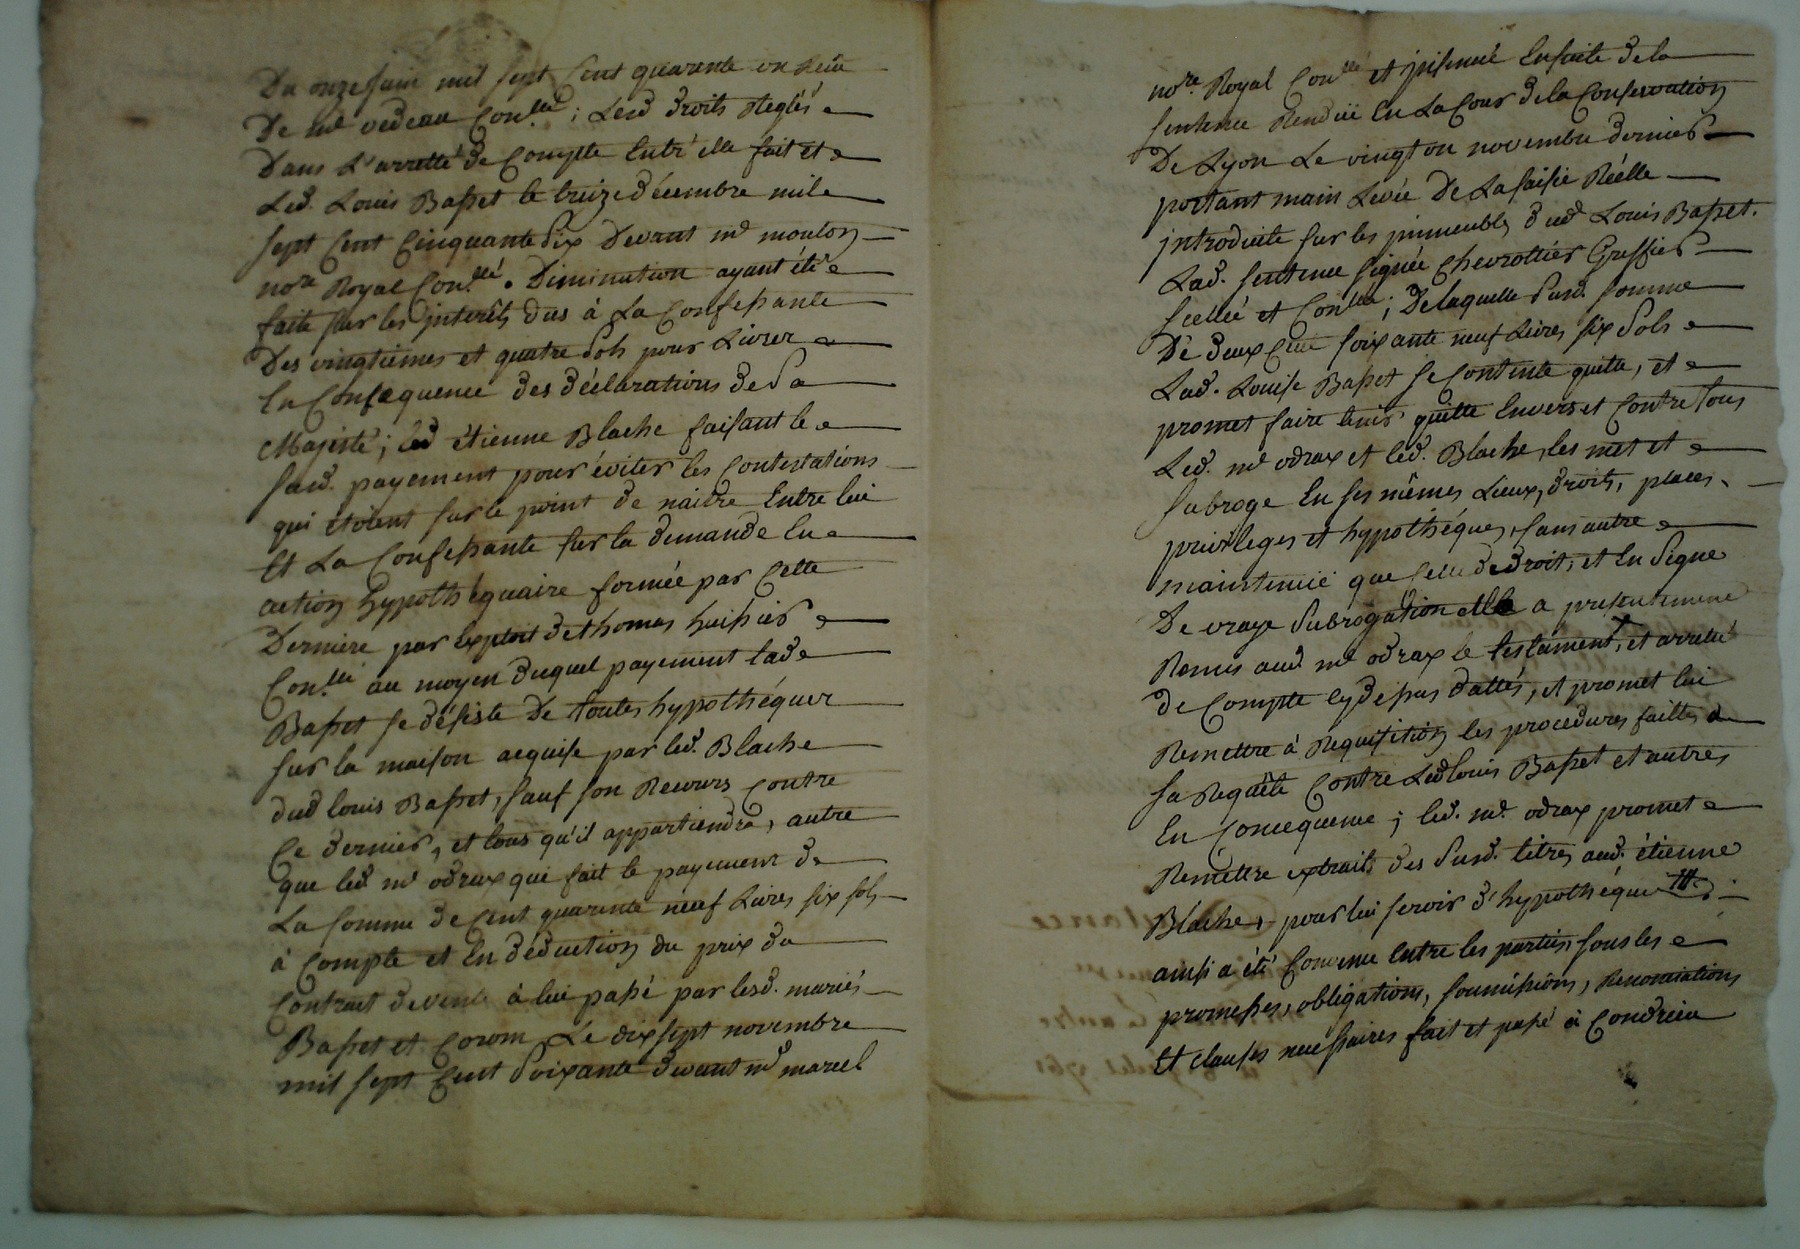 Du onze juin mil sept Cent quarante un Reçu
De me vedeau Con.llé; Lesd droits Reglés
Dans L'arretté de Compte Entr'elle fait et
Led. Louis Basset le treize décembre mil
sept Cent Cinquante Six Devant me mouton
nore Royal Con.llé. Diminution ayant été
faite sur les jnterêts dus à La Confessante
Des vingtiemes et quatre sols pour Livres
En Consequence des déclarations de Sa
Majesté; led étienne Blache faisant le
susd. payement pour éviter les Contestations
qui étoient sur le point de naitre Entre lui
Et La Confessante sur la demande En
action hypothéquaire formée par Cette
Derniere par Exploit de thomas huissier
Con.llé au moyen duquel payement lad
Basset se désiste De toutes hypothéques
sur la maison acquise par led. Blache
dud louis Basset, sauf son Recours Contre
Ce dernier, et tous qu'il appartiendra, autre
que led me odrax qui fait le payement de
La somme de Cent quarante neuf Livres six sols
à Compte et En déduction du prix du
Contract de vente à lui passé par lesd. mariés
Basset et Corom Le dix sept novembre
mil sept Cent Soixante devant me marcel
nore Royal Con.llé et jnsinué Ensuite de la
sentence Rendüe En La Cour de la Conservation
De Lyon Le vingt un novembre dernier
portant main Levée De La saisie Réelle
jntroduite sur les jmmeubles dud Louis Basset.
Lad. sentence signée Chevrottier Greffier
scellée et Con.llée; De laquelle Susd. somme
De deux Cent soixante neuf Livres six Sols
Lad. Louise Basset se Contente quitte, et
promet faire tenir quitte Envers et Contre tous
Led. me odrax et led. Blache, les met et
subroge En ses mêmes Lieux, droits, places,
privileges et hypothéques, sans autre
maintenüe que Celle de droit, et En Signe
De vraye Subrogation elle a presentement
Remis aud me odrax le testament, et arretté
de Compte Cy dessus dattés, et promet lui
Remettre à Requisition les procedures faittes a
sa Requête Contre Led louis Basset et autres
En Concequence; led. me odrax promet
Remettre extraits des Susd. titres aud. étienne
Blache, pour lui servir d'hypothéque
ainsi a été Convenu Entre les parties sous les
promesses, obligations, soumissions, Renonciations
Et clauses necessaires fait et passé à Condrieu